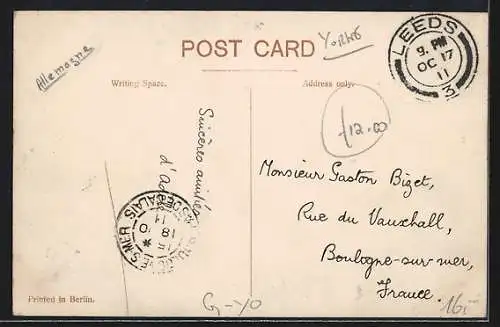 POST CARD
Yorks
Allemagne
LEEDS
9. PM
OC 17
11
3
Writing Space.
Address only.
£12.00
Sincères amitiés
Monsieur Gaston Bizet,
Rue du Vauxhall,
Boulogne-sur-mer,
France.
S-MER * PAS DE CALAIS
15
18 10
11
Printed in Berlin.
G-YO